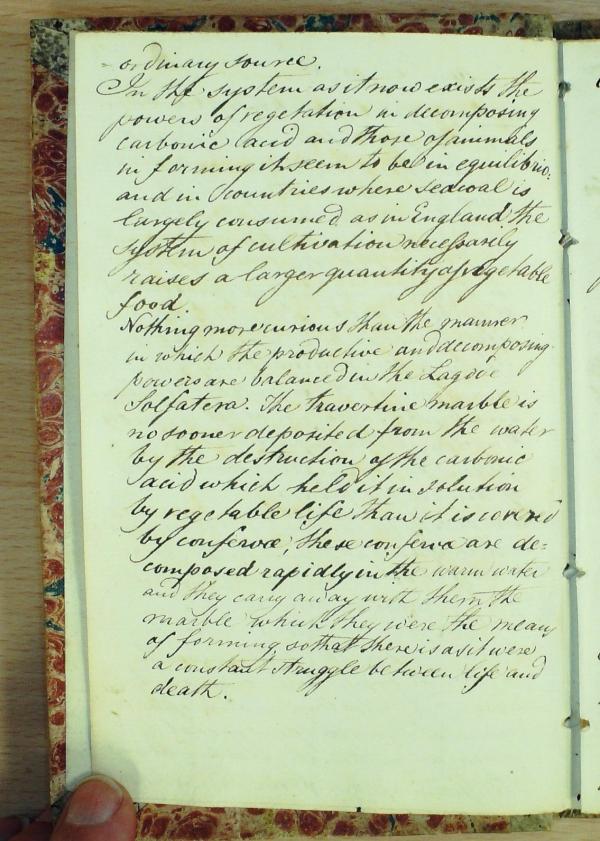 - ordinary source.
In the system as it now exists the
powers of vegetation in decomposing
carbonic acid and those of animals
in forming it seem to be in equilibrio:
and in countries where seacoal is
largely consumed as in England the
system of cultivation necessarily
raises a larger quantity of vegetable
food.
Nothing more curious than the manner
in which the productive and decomposing
powers are balanced in the Lago de
Solfatera. The travertine marble is
no sooner deposited from the water
by the destruction of the carbonic
acid which held it in solution
by vegetable life than it is covered
by confervæ; these confervæ are de=
composed rapidly in the warm water
and they carry away with them the
marble which they were the means
of forming, so that there is as it were
a constant struggle between life and
death.